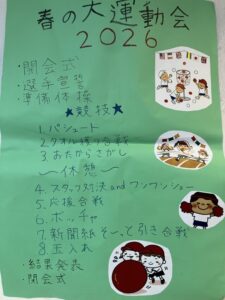 春の大運動会
2026
・開会式
・選手宣誓
・準備体操
★競技★
1.パシュート
2.タオル 合戦
3.おたからさがし
～休憩～
4.スタッフ対決andワンワンショー
5.応援合戦
6.ボッチャ
7.新聞紙そーっと引き合戦
8.玉入れ
・結果発表
・閉会式